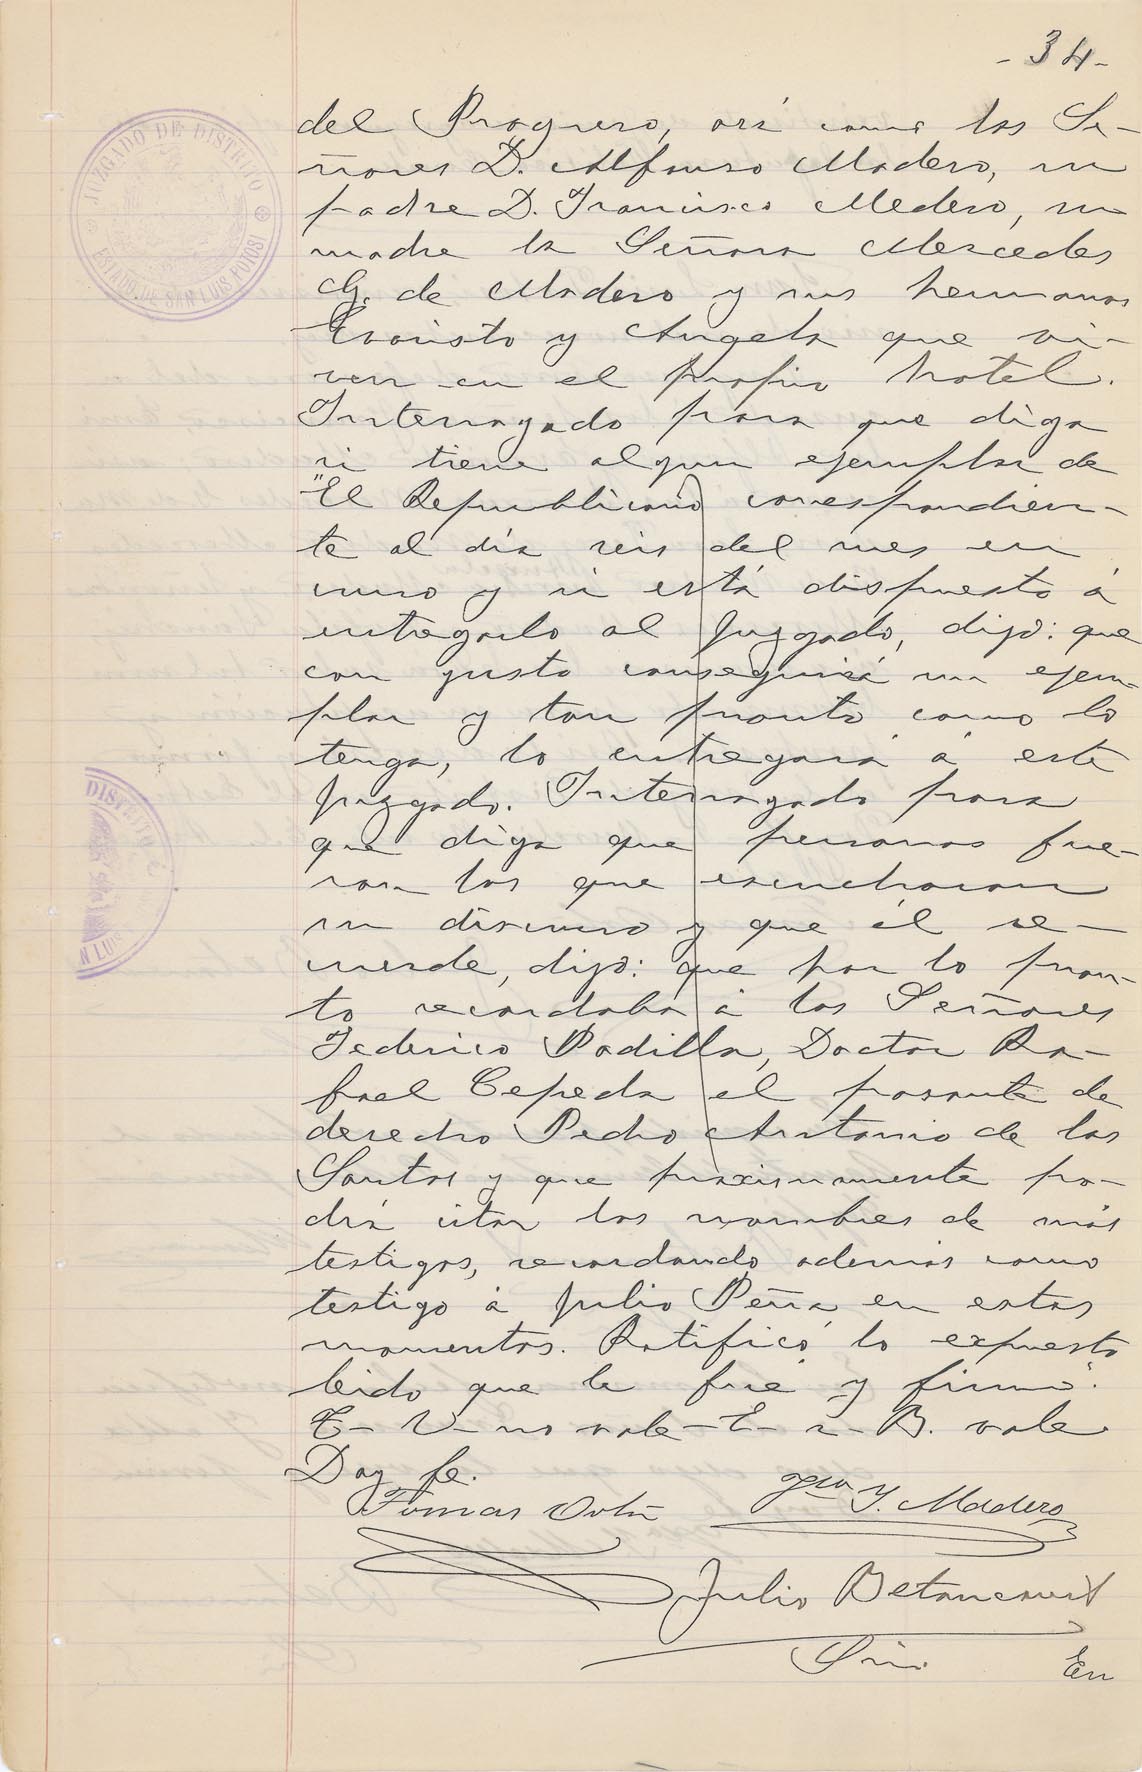 - 34 -
del Progreso, asi como los Se-
ñores D. Alfonso Madero, su
padre D. Francisco Madero, su
madre la Señora Mercedes
G. de Madero y sus hermanos
Evaristo y Angela que vi-
ven en el propio hotel.
Interrogado para que diga
si tiene algun ejemplar de
"El Republicano correspondien-
te al día seis del mes en
curso y si está dispuesto á
entregarlo al Juzgado, dijo: que
con gusto conseguirá un ejem-
plar y tan pronto como lo
tenga, lo entregará á este
Juzgado. Interrogado para
que diga que personas fue-
ron las que escucharon
su discurso y que él re-
cuerde, dijo: que por lo pron-
to recordaba á los Señores
Federico Padilla, Doctor Ra-
fael Cepeda el pasante de
derecho Pedro Antonio de los
Santos y que proximamente po-
drá citar los nombres de más
testigos, recordando además como
testigo á Julio Peña en estos
momentos. Ratificó lo expuesto
leido que le fué y firmó.
T- V- no vale - E- s- B. vale
Doy fe.
Tomas Ortiz
Fco I. Madero
Julio Betancourt
Srio.
En
JUZGADO DE DISTRITO
ESTADO DE SAN LUIS POTOSI
DISTRITO
N LUIS